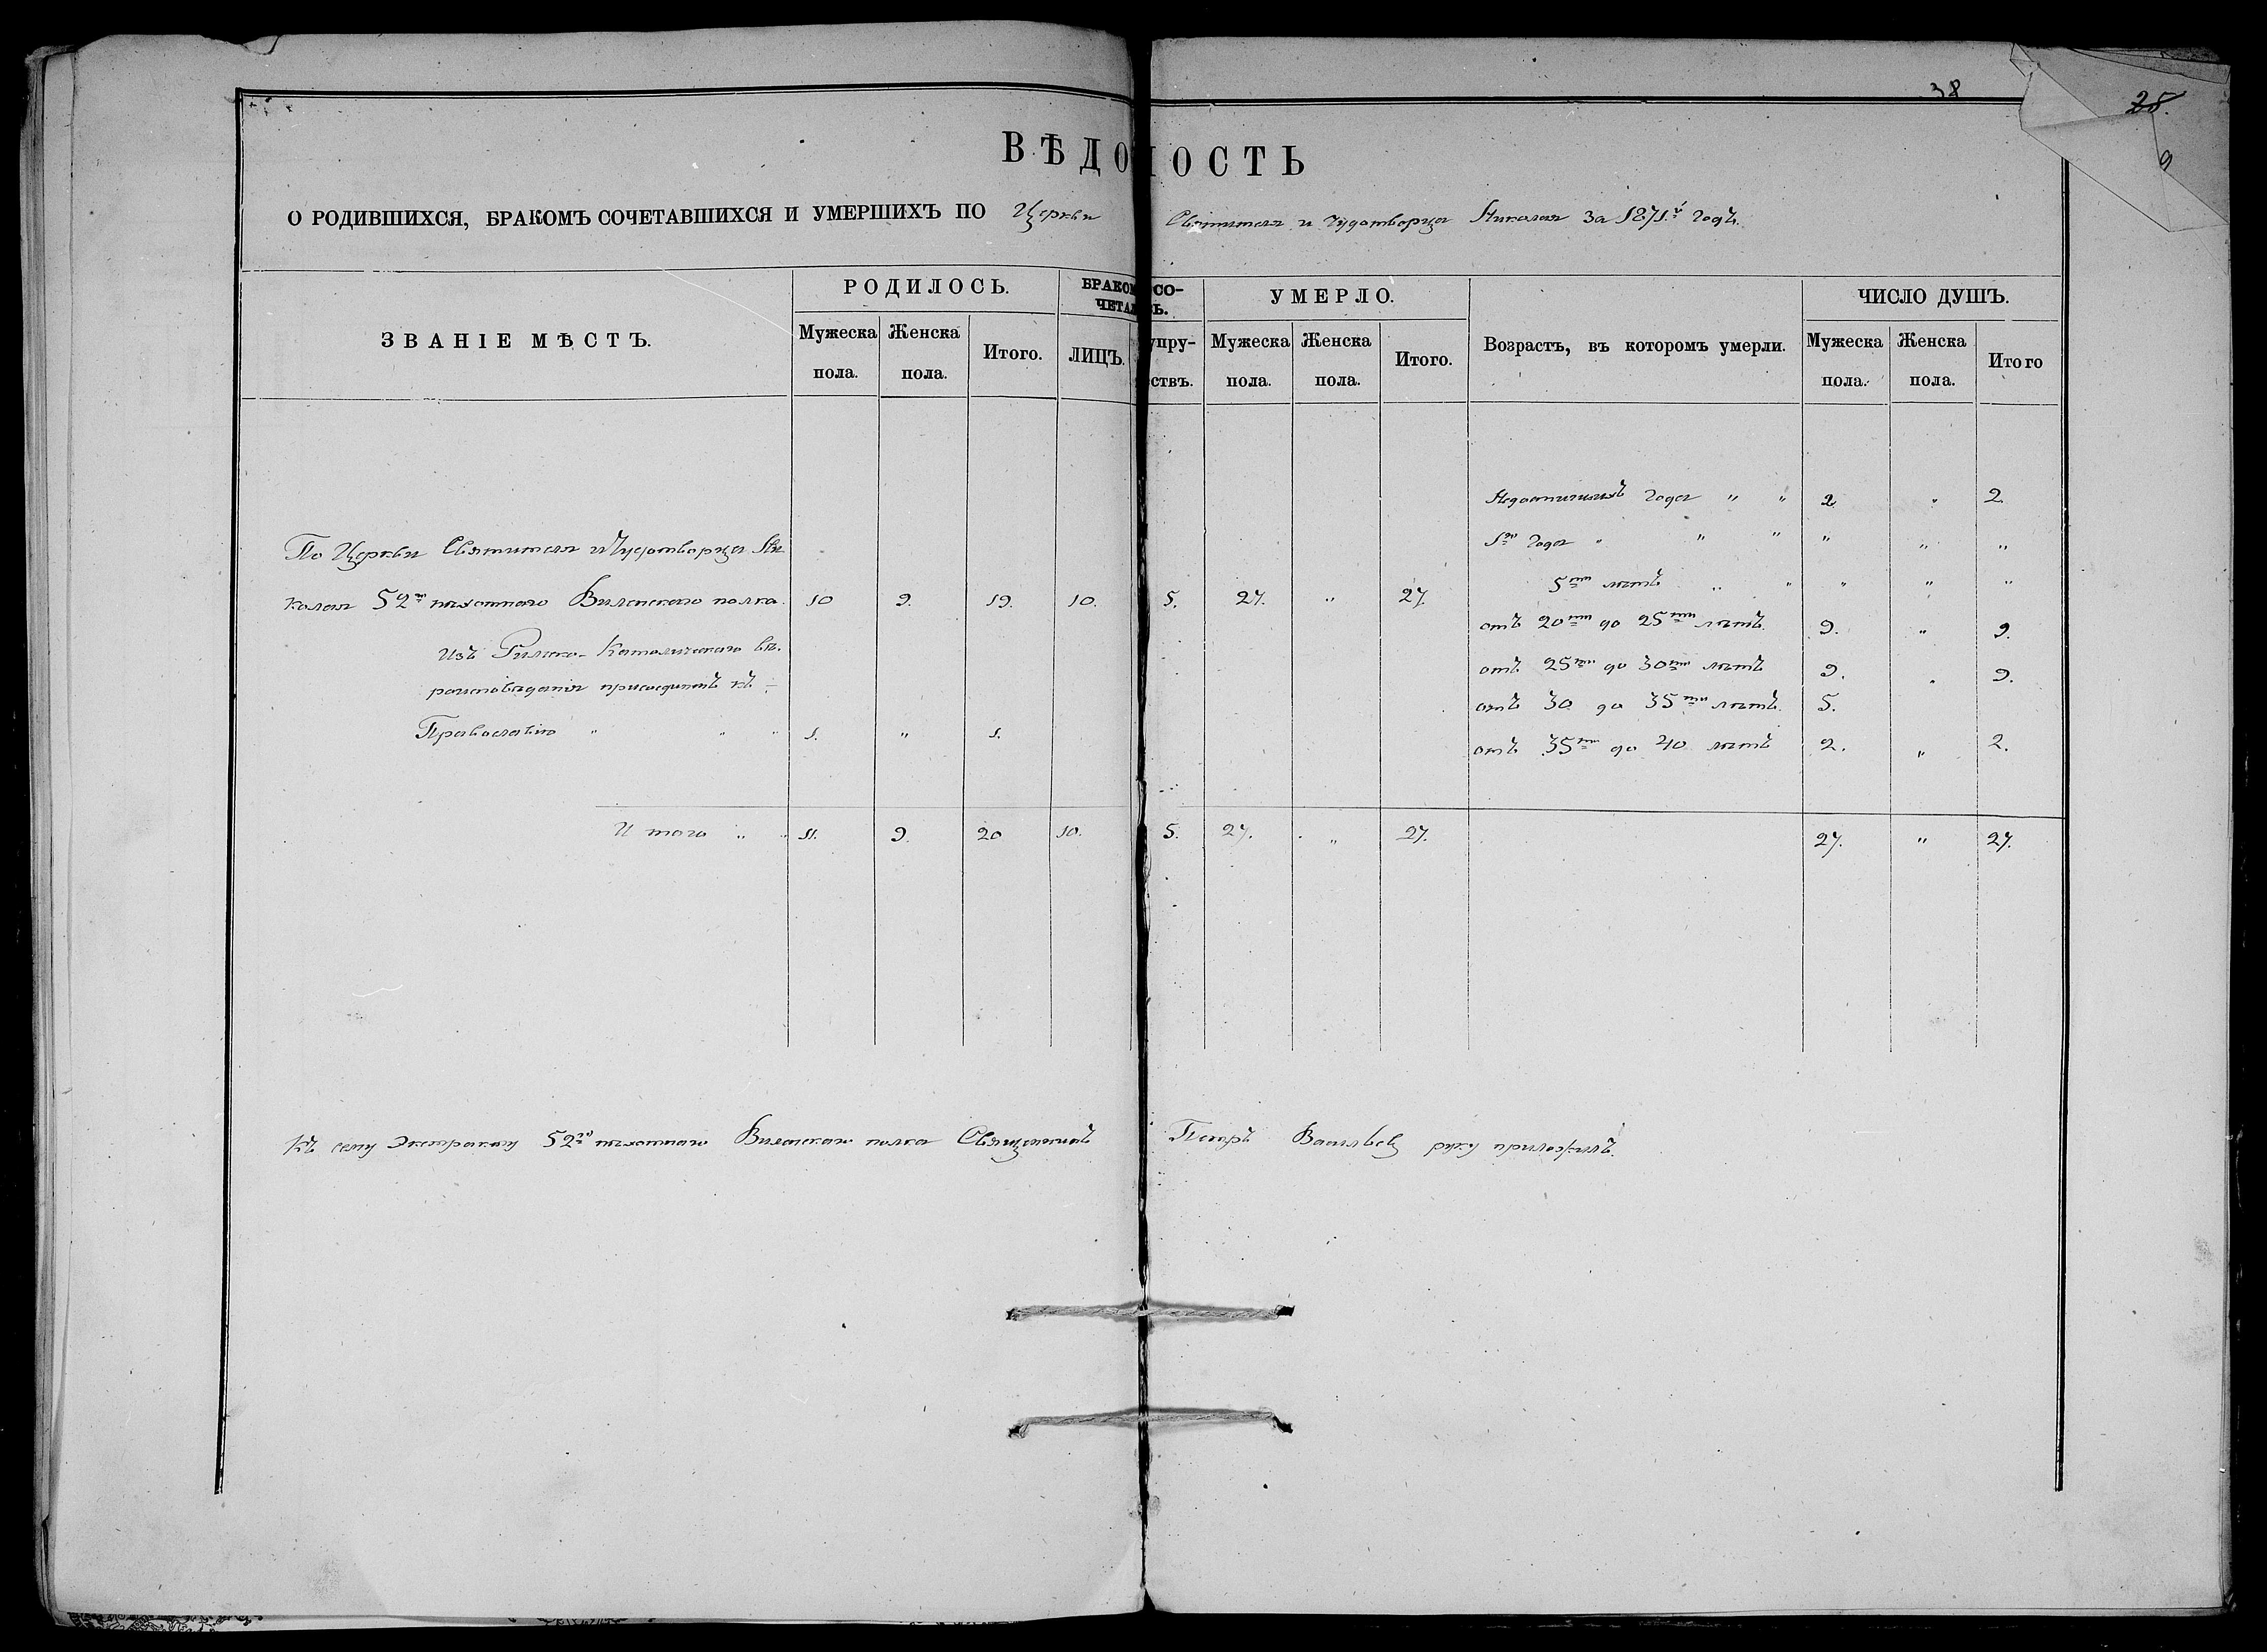 38
28.
9
ВѢДОМОСТЬ
О РОДИВШИХСЯ, БРАКОМЪ СОЧЕТАВШИХСЯ И УМЕРШИХЪ ПО Церкви Святителя и Чудотворца Николая за 1871й годъ.
ЗВАНІЕ МѢСТЪ. РОДИЛОСЬ. БРАКОМЪ СО- УМЕРЛО. Возрастъ, въ которомъ умерли. ЧИСЛО ДУШЪ.
ЧЕТАЛОСЬ.
Мужеска Женска Итого. ЛИЦЪ. упру- Мужеска Женска Итого. Мужеска Женска Итого
пола. пола. ствъ. пола. пола. пола. пола.
Недостигшихъ года " " 2 " 2
1го года " " " " " "
По Церкви Святителя и Чудотворца Ни
5ти лѣтъ " " " " "
колая 52го пѣхотнаго Виленскаго полка. 10 9. 19. 10. 5. 27. " 27.
отъ 20ти до 25ти лѣтъ 9. " 9.
Изъ Римско-Католическаго вѣ-
отъ 25ти до 30ти лѣтъ 9. " 9.
роисповѣданія присоединенъ къ
отъ 30 до 35ти лѣтъ 5.
Православію " " " 1. " 1.
отъ 35ти до 40 лѣтъ 2. " 2.
Итого " " 11. 9. 20 10. 5. 27. " 27. 27. " 27.
Къ сему Экстракту 52го пѣхотнаго Виленскаго полка Священникъ Петръ Васильевъ руку приложилъ.